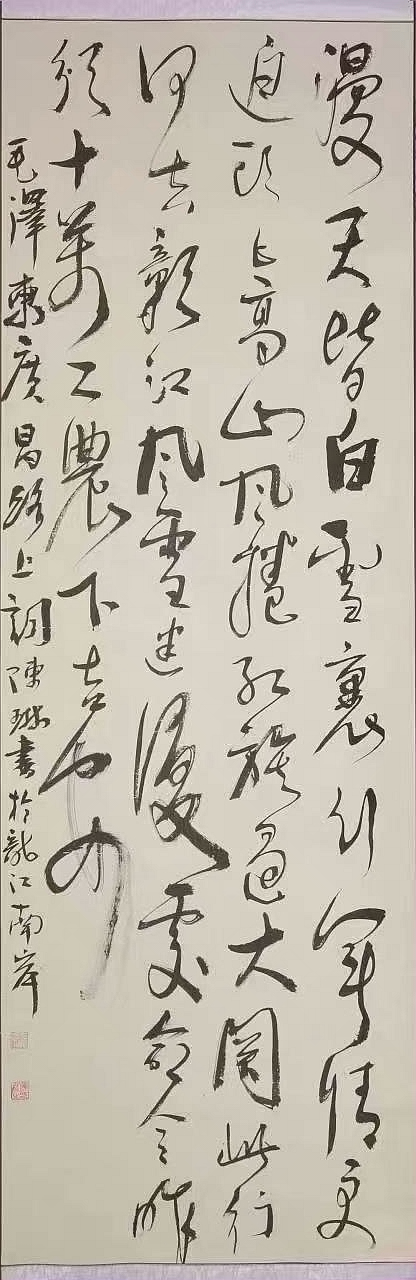 漫天皆白雪裏行軍情更
迫頭上高山風捲紅旗過大關此行
何去贛江風雪迷漫處命令昨
頒十萬工農下吉安
毛澤東廣昌路上詞陳書於龍江南岸